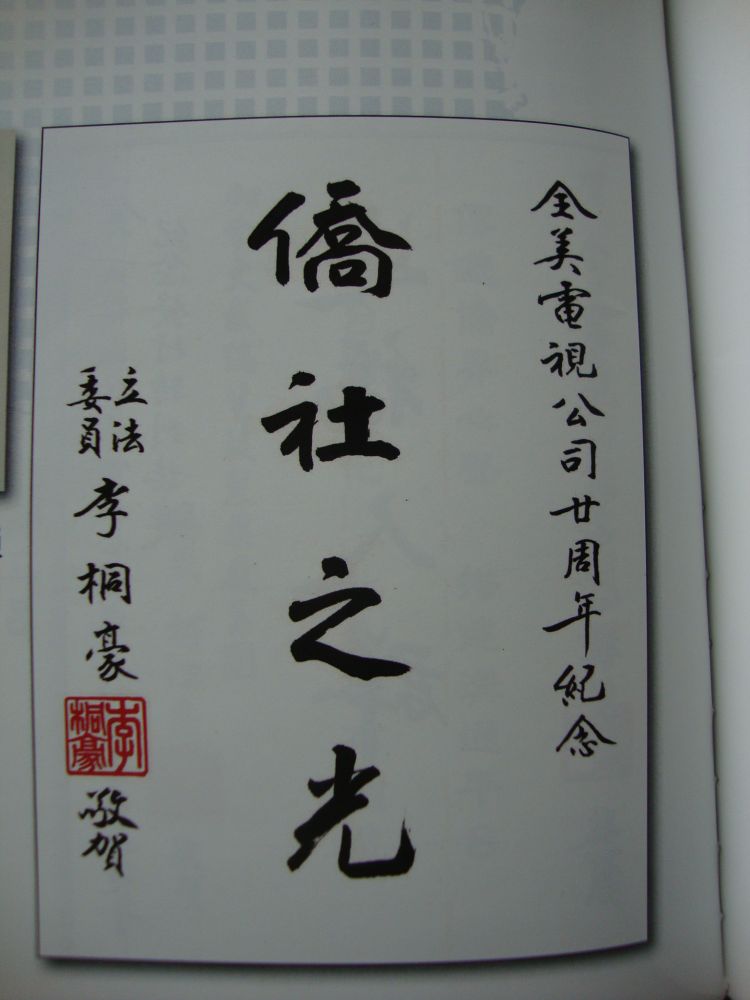 全美電視公司廿周年紀念
僑社之光
立法委員 李桐豪 敬賀
李桐豪